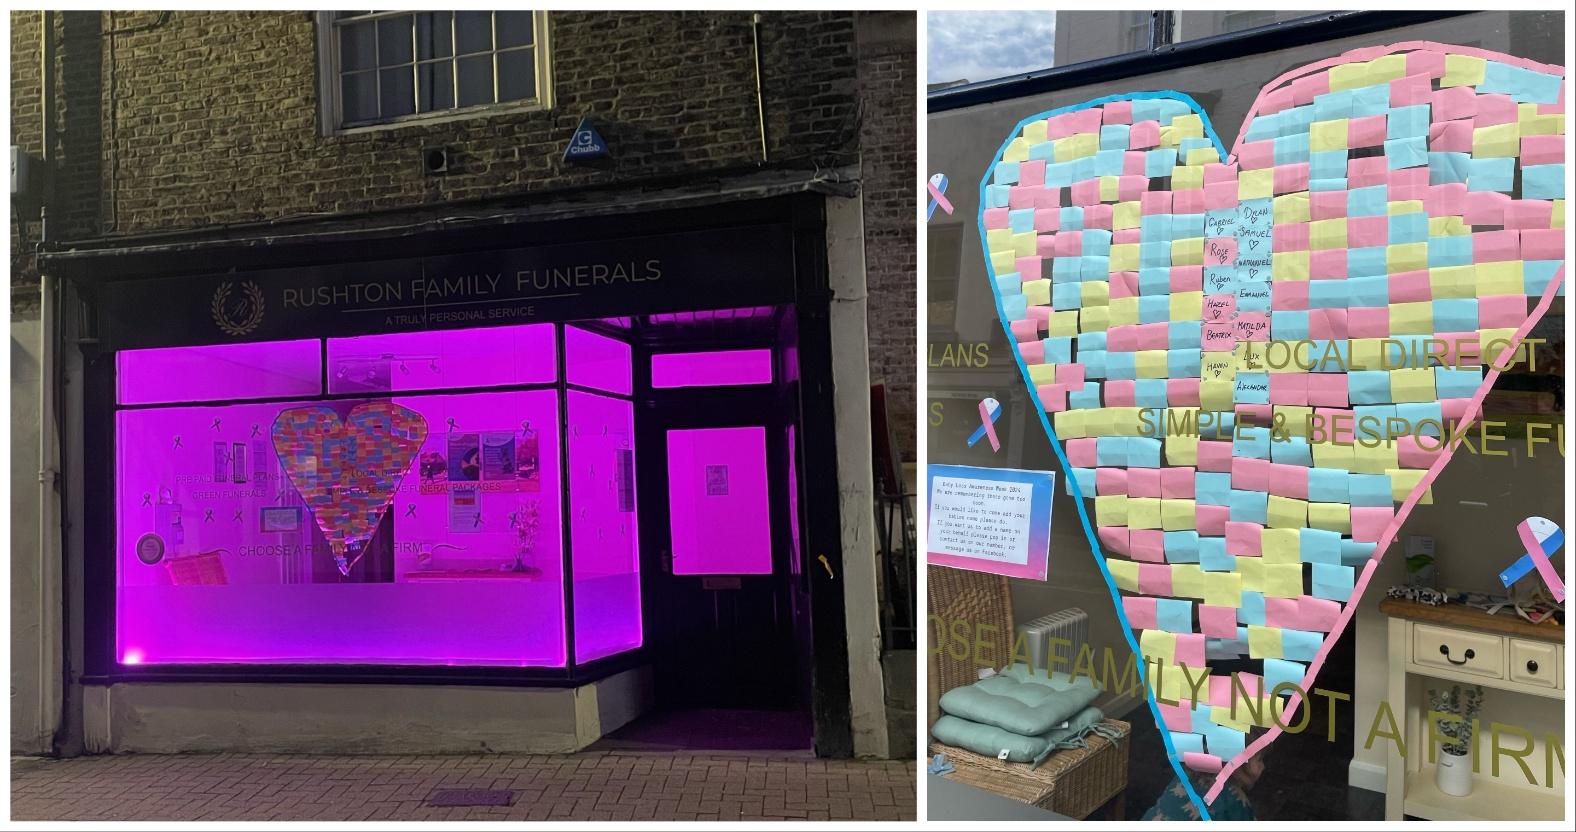 Chubb
R
RUSHTON FAMILY FUNERALS
A TRULY PERSONAL SERVICE
PRE PAID FUNERAL PLANS
LOCAL DIRECT
GREEN FUNERALS
SIMPLE & BESPOKE FUNERAL PACKAGES
CHOOSE A FAMILY NOT A FIRM
GABRIEL
DYLAN
SAMUEL
ROSE
NATHANIEL
Ruben
EMMANUEL
HAZEL
MATILDA
BEATRIX
LUX
HAVEN
ALEXANDER
LANS
LOCAL DIRECT
S
SIMPLE & BESPOKE FU
Baby Loss Awareness Week 2024
We are remembering those gone too
soon.
If you would like to come add your
babies name please do.
If you want us to add a name on
your behalf please pop in or
contact us on our number, or
message us on Facebook.
OSE A FAMILY NOT A FIRM